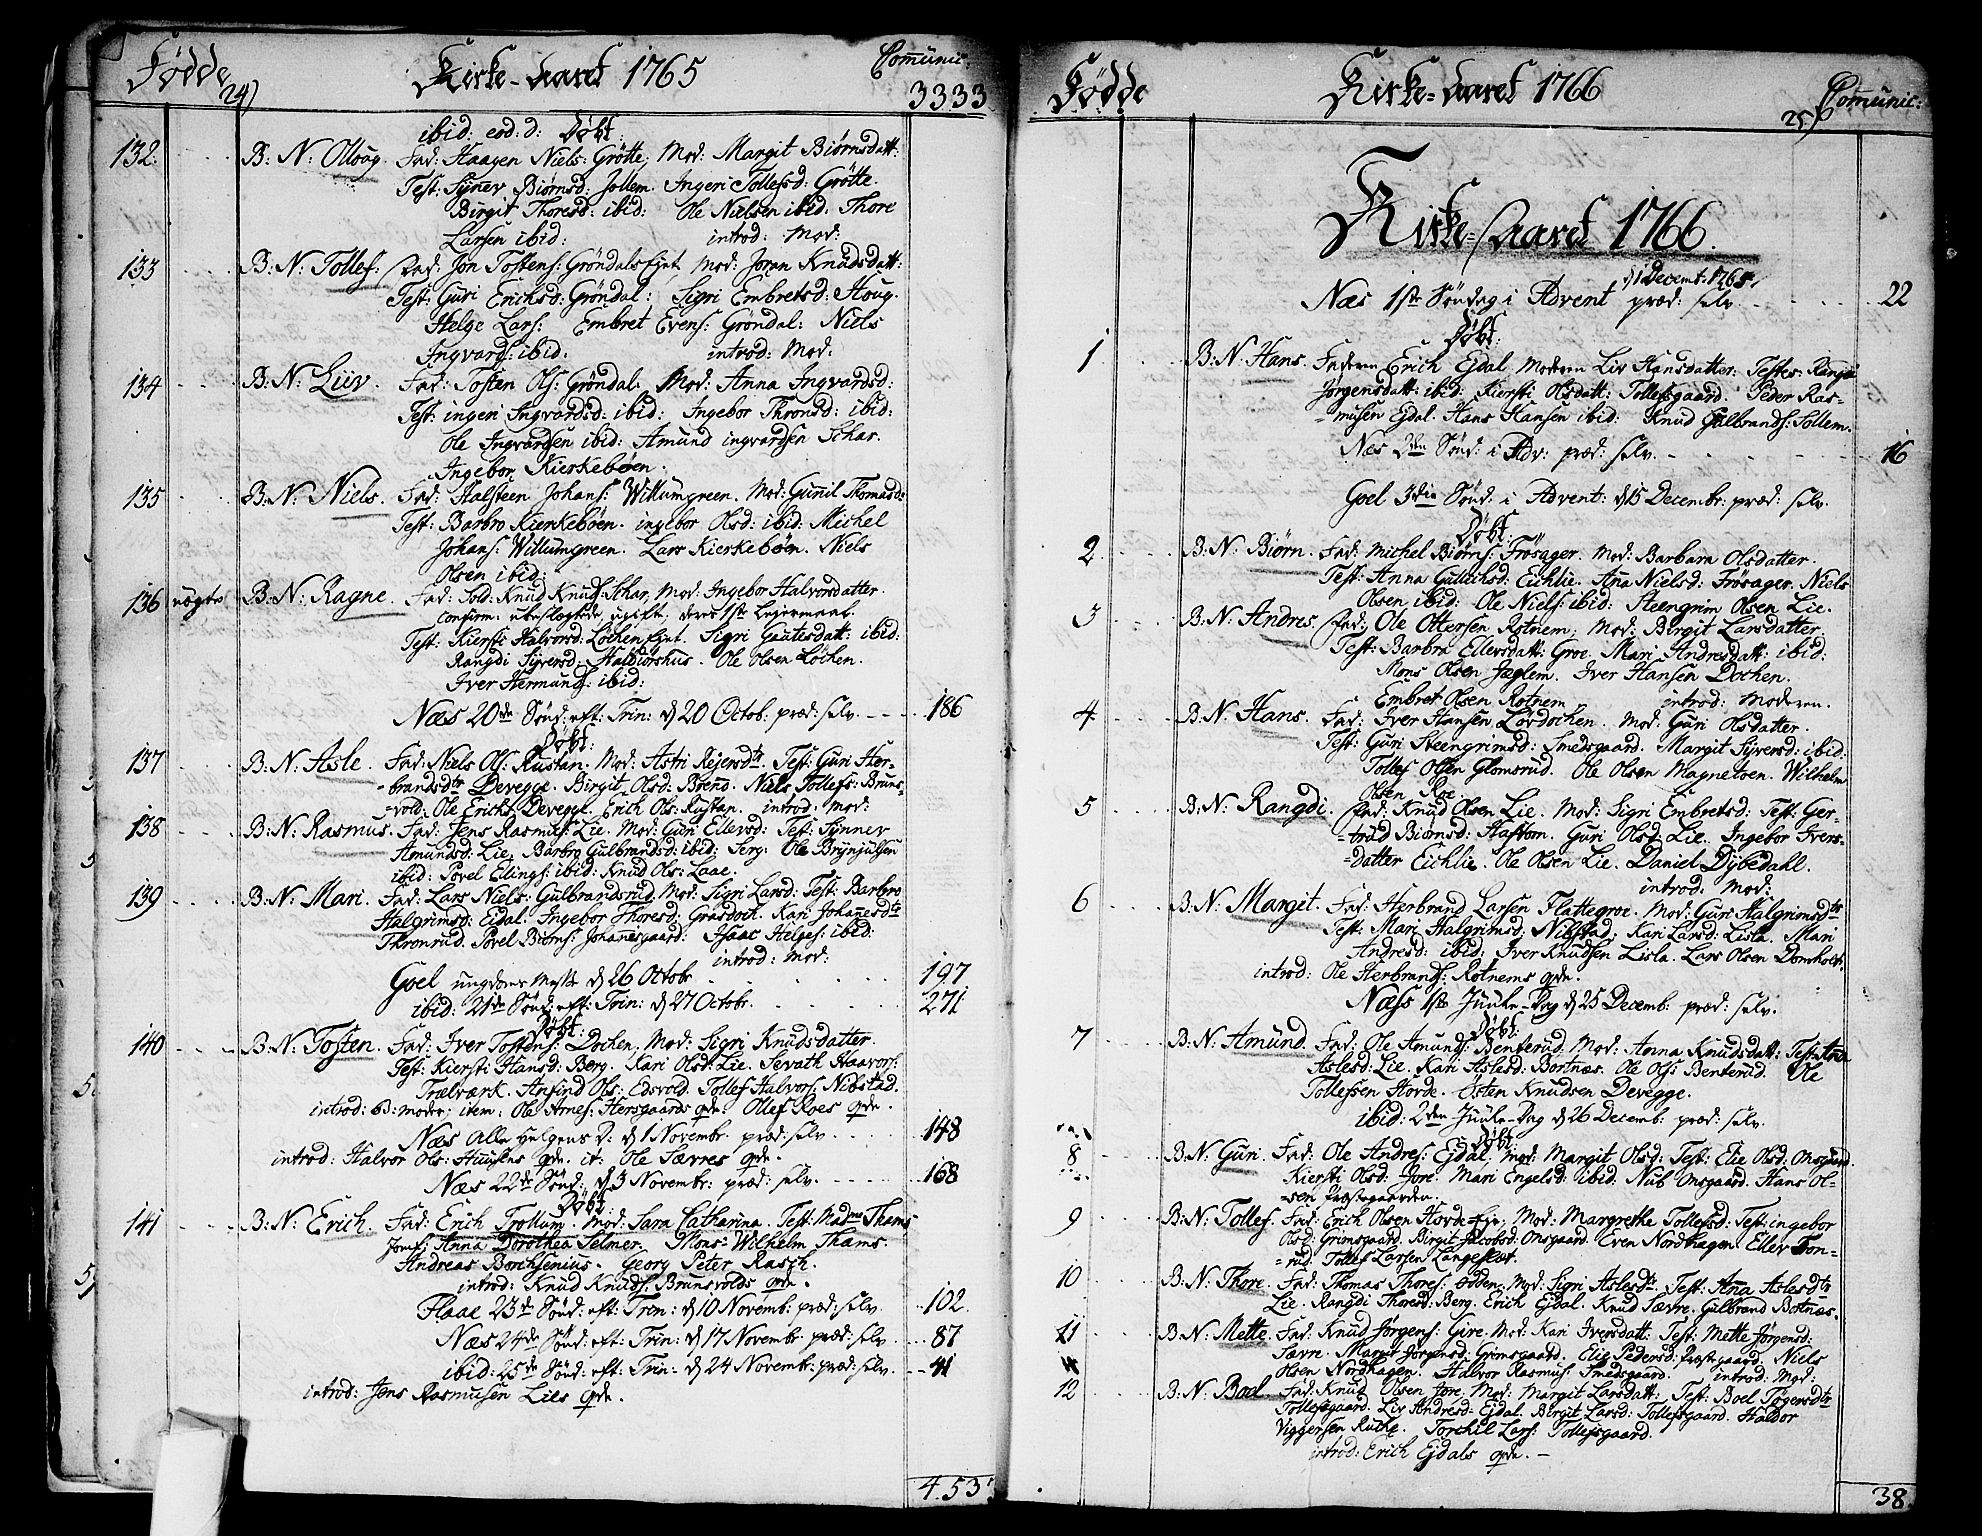 Fødde 24) Kirke-Aaret 1765 Comunic:
3333
ibid: eod: d: Døbt:
132. B: N: Olloug. Fad: Haagen Niels: Grøtte, Mod: Margit Biørnsdatt:
Test: Synev Biørnsd: Jollem. Ingeri Tollefsd: Grøtte.
Birgit Thoresd: ibid: Ole Nielsen ibid: Thore
Larsen ibid: introd: Mod:
133 B: N: Tollef: Fad: Jon Tostens: Grøndalsejet, Mod: Joran Knudsdatt:
Test: Guri Erichsd: Grøndal: Sigri Embretsd: Houg.
Helge Lars: Embret Evens: Grøndal: Niels
Ingvards: ibid. introd: Mod:
134 B: N: Liiv. Fad: Tosten Ols: Grøndal. Mod: Anna Ingvardsd:
Test: ingeri Ingvardsd: ibid: Ingebor Thronsd: ibid:
Ole Ingvardsen ibid: Amund ingvardsen Schar.
Ingebor Kierkebøen.
135 B: N: Niels. Fad: Halsteen Johans: Willumgreen. Mod: Gunil Thomasd:
Test: Barbro Kierkebøen. ingebor Olsd: ibid: Michel
Johans: Willumgreen. Lars Kierkebøen. Niels
Olsen ibid:
136 uægte B: N: Ragne. Fad: Sold: Knud Knuds: Schar, Mod: Ingebor Halvorsdatter.
confirm: ubeslægtede, ugift, deres 1ste Leiermaal.
Test: Kiersti Halvorsd: Løchen Ejet. Sigri Gautesdatt: ibid:
Rangdi Syversd: Haldiorshus. Ole Olsen Løchen.
Iver Hermunds: ibid:
Næs 20de Sønd: eft: Trin: d 20 Octob: præd: selv 186
Døbt:
137 B: N: Asle. Fad: Niels Ols: Rustan. Mod: Astri Rejersdtr. Test: Guri Her-
brandsdtr Devegge. Birgit Olsd: Brend. Niels Tollefs: Bruns-
-vold: Ole Erichs: Devegge. Erich Ols: Rustan. introd: Mod:
138 B: N: Rasmus. Fad: Jens Rasmus: Lie. Mod: Guri Ellersd: Test: Synnev
Amundsd: Lie. Barbro Gulbrandsd: ibid: Serg: Ole Brynjulsen
ibid: Povel Elings: ibid: Knud Ols: Laae.
139 B: N: Mari. Fad: Lars Niels: Gulbrandsrud. Mod: Sigri Larsd: Test: Barbro
Halgrimsd: Eidal. Ingebor Thoresd: Grasdoch. Kari Johanesdtr
Thronrud. Povel Biørns: Johannesgaard: Isaac Helges: ibid:
introd: Mod:
Goel ungdoms Messe d 26 Octobr 197
ibid: 21de Sønd: eft: Trin: d 27 Octobr. 271
Døbt:
140 B: N: Tosten. Fad: Iver Tostens: Dochen. Mod: Sigri Knudsdatter.
Test: Kiersti Hansd: Berg. Kari Olsd: Lie. Sevath Haavors:
Trælværk. Arfind Ols: Edsvold. Tollef Halvors: Nibstad.
introd: B: moder; item: Ole Arnes: Hersgaards qde. Ollef Roes qde.
Næs Alle Helgens D: d 1 Novembr: præd: selv 148
introd: Halvor Ols: Huusens qde. it: Ole Tærres qde.
Næs 22de Sønd: d 3 Novembr: præd: selv 168
Døbt:
141 B: N: Erich. Fad: Erich Trollum. Mod: Sara Catharina. Test: Madme Thams
Jomf: Anna Dorothea Selmer. Mons: Wilhelm Thams.
Andreas Borchsenius. Georg Peter Rasch.
introd: Knud Knuds: Brunsvolds qde.
Flaae 23de Sønd: eft: Trin: d 10 Novemb: præd: selv 102.
Næs 24de Sønd: eft: Trin: d 17 Novemb: præd: selv 87
ibid: 25de Sønd: eft: Trin: d 24 Novemb: præd: selv 41
introd: Jens Rasmusen Lies qde.
4.53
Fødde Kirke-Aaret 1766 25) Comunic:
Kirke-Aaret 1766.
d 1 Decemt: 1765
Næs 1ste Søndag i Advent præd: selv 22
Døbt:
1 B: N: Hans. Faderen Erich Ejdal Moderen Liv Hansdatter. Testes: Rangdi
Jørgensdatt: ibid: Kiersti Olsdatt: Tollefsgaard. Peder Ras-
-musen Ejdal. Hans Hansen ibid: Knud Gulbrands: Sollem.
Næs 2den Sønd: i Adv: præd: selv. 16
Goel 3die Sønd: i Advent: d 15 Decembr: præd: selv.
Døbt:
2 B: N: Biørn. Fad: Michel Biørns: Frøsager. Mod: Barbara Olsdatter.
Test: Anna Gullichsd: Eichlie. Ana Nielsd: Frøsager. Niels
Olsen ibid: Ole Niels: ibid: Steengrim Olsen Lie.
3 B: N: Andres. Fad: Ole Ottersen Rotnem, Mod: Birgit Larsdatter.
Test: Barbra Ellersdatt: Groe. Mari Andresdatt: ibid:
Mons Olsen Jæglem. Iver Hansen Dochen.
Embret Olsen Rotnem introd: Moderen.
4 B: N: Hans. Fad: Iver Hansen Løvdochen. Mod: Guri Olsdatter.
Test: Guri Steengrimsd: Smedsgaard. Margit Syversd: ibid:
Tollef Olsen Glomsrud. Ole Olsen Magnetoen. Wilhelm
Olsen Roe
5 B: N: Rangdi. Fad: Knud Olsen Lie. Mod: Sigri Embretsd: Test: Ger-
-trud Biørnsd: Haftorn. Guri Olsd: Lie. Ingebor Ivers-
-datter Eichlie. Ole Olsen Lie. Daniel Dybedahl.
introd: Mod:
6 B: N: Margit. Fad: Herbrand Larsen Flattegroe. Mod: Guri Halgrimsdtr
Test: Mari Halgrimsd: Nibstad. Kari Larsd: Lisla. Mari
Andresd: ibid: Iver Knudsen Lisla. Lars Olsen Domholt.
introd: Ole Herbrands: Rotnems qde.
Næss 1ste Juule-Dag d 25 Decemb: præd: selv.
Døbt:
7 B: N: Amund. Fad: Ole Amunds: Benterud. Mod: Anna Knudsdatt: Test: Ana
Aslesd: Lie. Kari Aslesd: Bortnæs. Ole Ols: Benterud. Ole
Tollefsen Horde. Østen Knudsen Devegge.
ibid: 2den Juule-Dag d 26 Decemb: præd: selv.
Døbt:
8 B: N: Guri. Fad: Ole Andres: Ejdal. Mod: Margit Olsd: Test: Elie Olsd: Onsgard.
Kiersti Olsd: Jore. Mari Engelsd: ibid: Nub Onsgaard. Hans Ol-
sen Præstegaarden.
9 B: N: Tollef. Fad: Erich Olsen Horde Eje, Mod: Margrethe Tollefsd: Test: ingebor
Olsd: Grimsgaard. Birgit Jacobsd: Onsgaard. Even Nordhagen. Ellev Ton-
-rud. Tollef Larsen Langeslet.
10 B: N: Thore. Fad: Thomas Thores: Odden, Mod: Sigri Aslesdtr Test: Ana Aslesdtr
Lie. Rangdi Thoresd: Berg. Erich Ejdal. Knud Sævre. Gulbrand Bortnæs.
11 B: N: Mette. Fad: Knud Jørgens: Gire. Mod: Kari Iversdatt: Test: Mette Jørgensd:
Sævre. Margit Jørgensd: Grimsgaard. Elie Pedersd: Præstgaard: Niels
Olsen Nordhagen. Halvor Rasmus: Smedsgaard. introd: Mod:
12 B: N: Boel. Fad: Knud Olsen Jore. Mod: Margit Larsdatt: Test: Boel Tøgersdtr
Tollefsgaard. Liv Andresd: Ejdal. Birgit Larsd: Tollefsgaard. Haldor
Viggersen Ruche. Torchil Lars: Tollefsgaard.
introd: Erich Ejdals qde.
38.